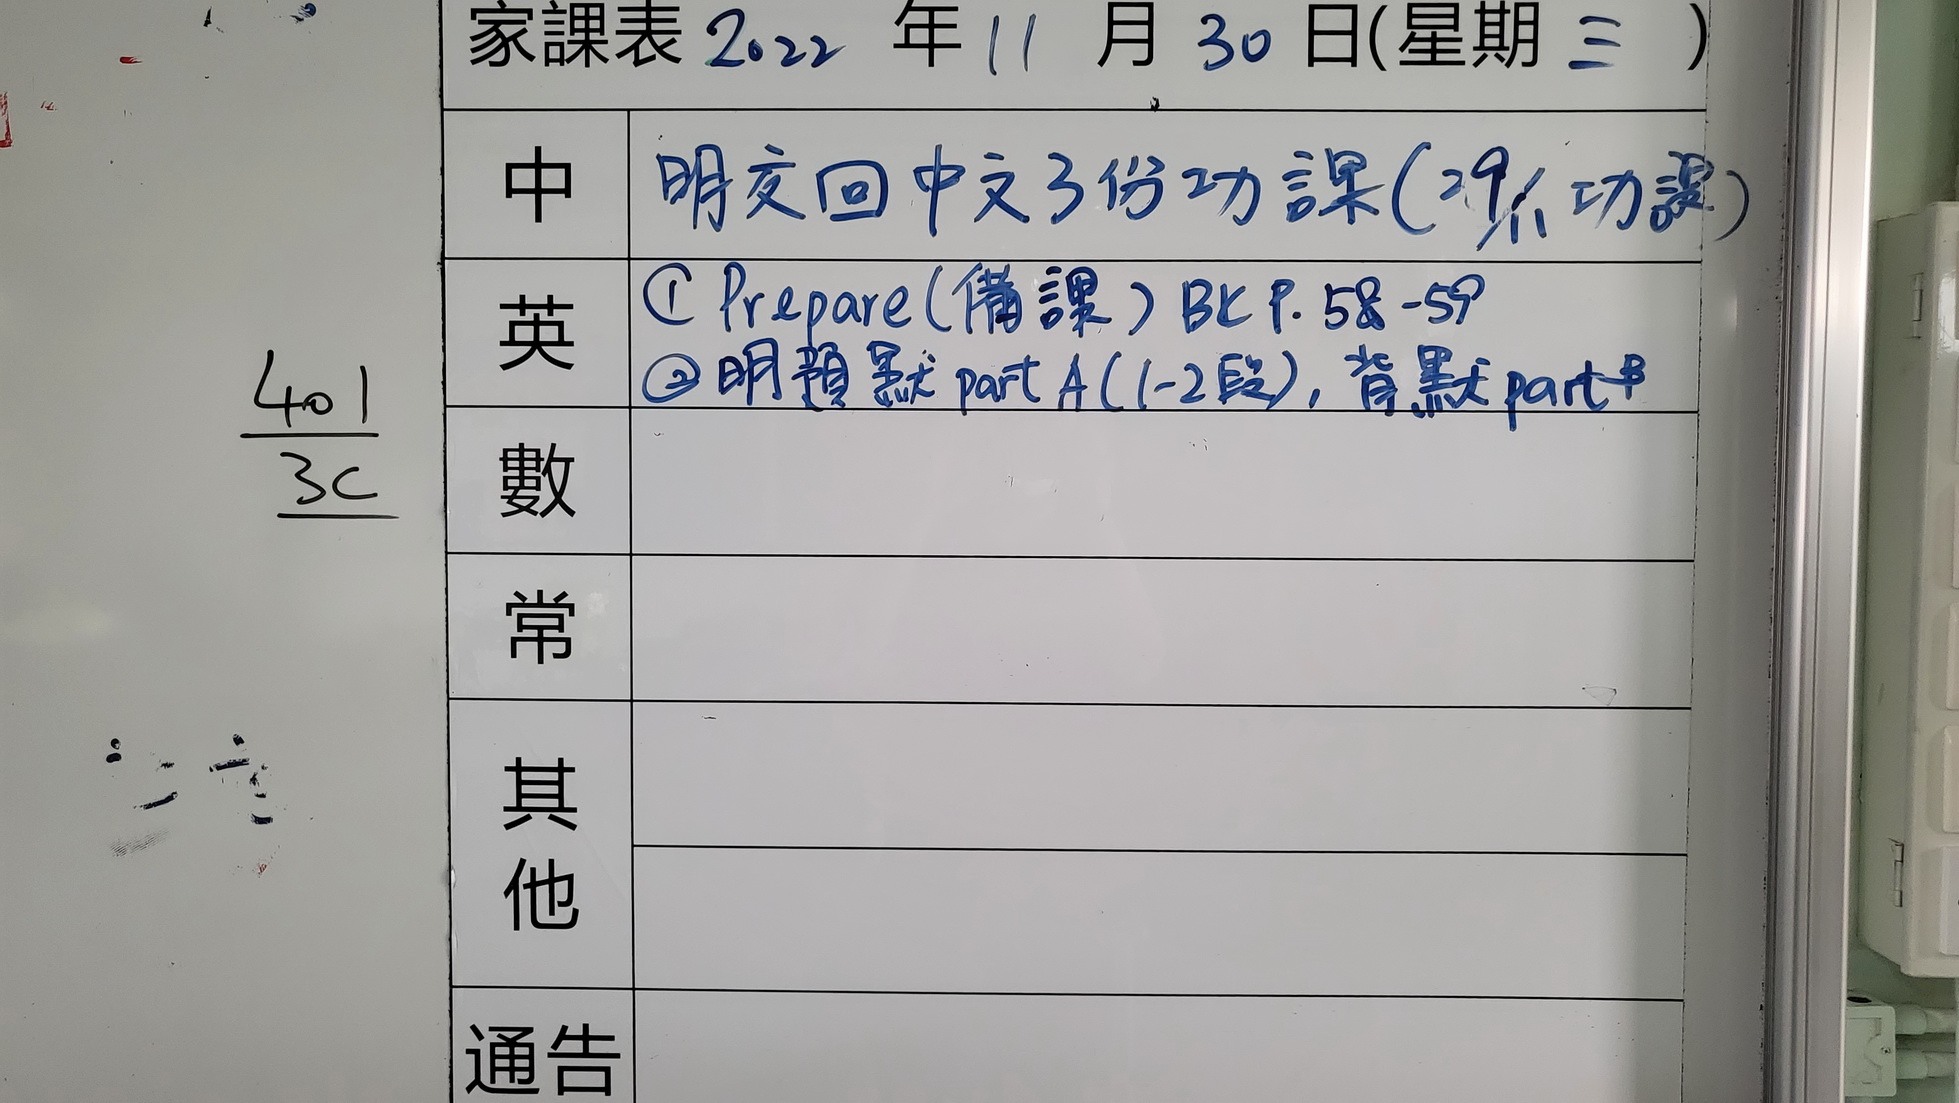 家課表 2022 年 11 月 30 日(星期 三 )
中 明交回中文3份功課(29/11 功課)
英 ① Prepare(備課) BK P. 58-59
② 明預默 part A (1-2段), 背默 part B
401
3C
數
常
其他
通告